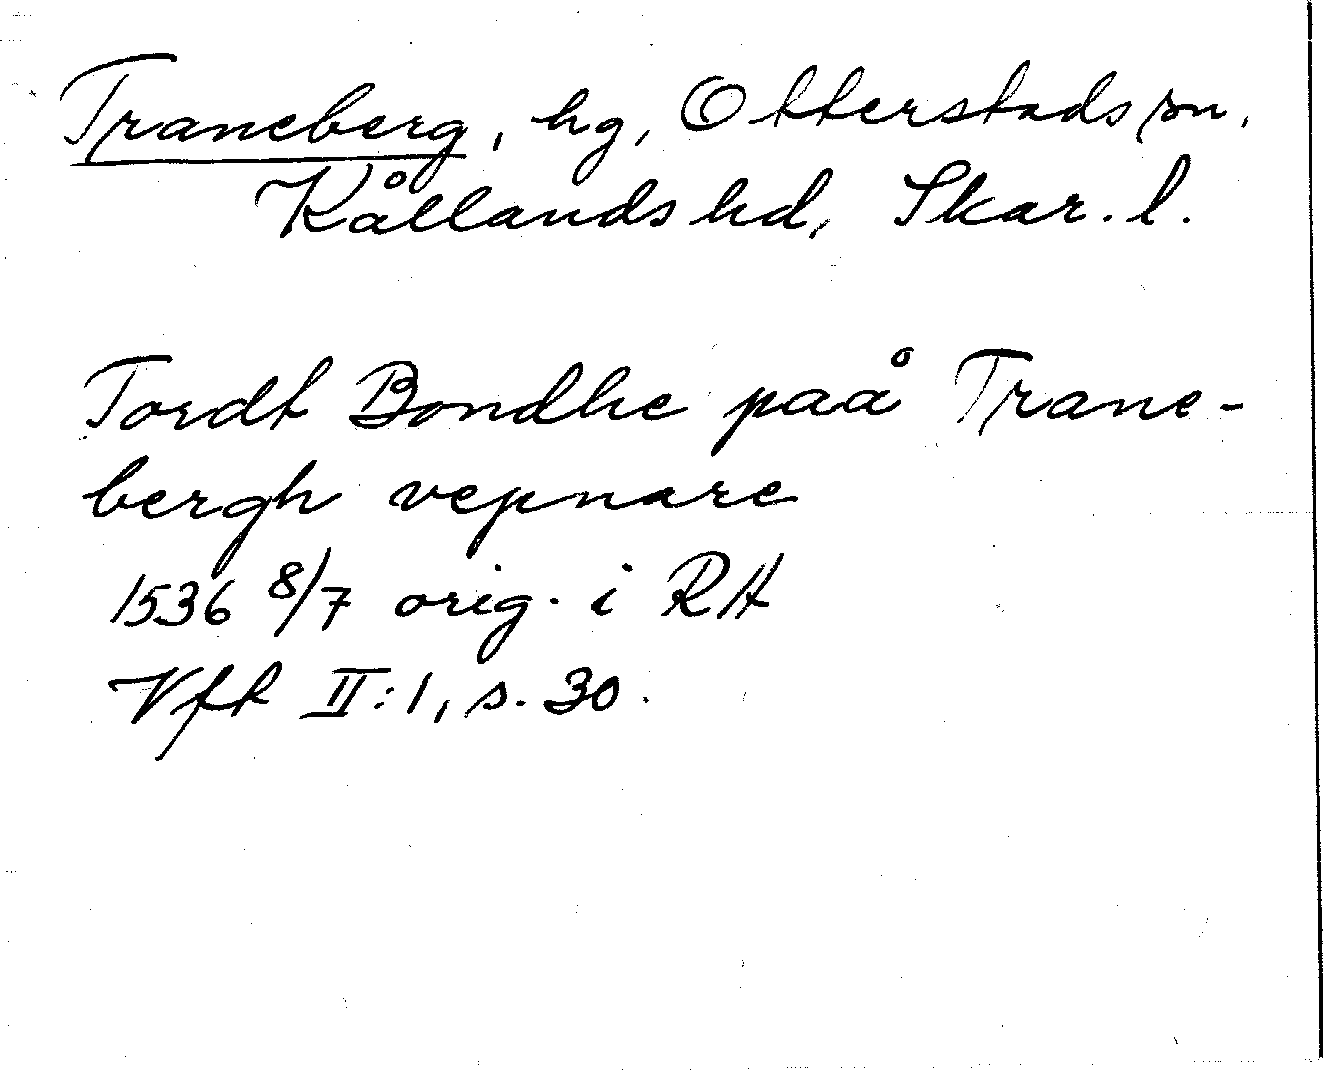 Traneberg, hg, Otterstads sn,
Kållands hd, Skar. l.
Tordt Bondhe paå Trane-
bergh vepnare
1536 8/7 orig. i RA
Vft II:1, s. 30.